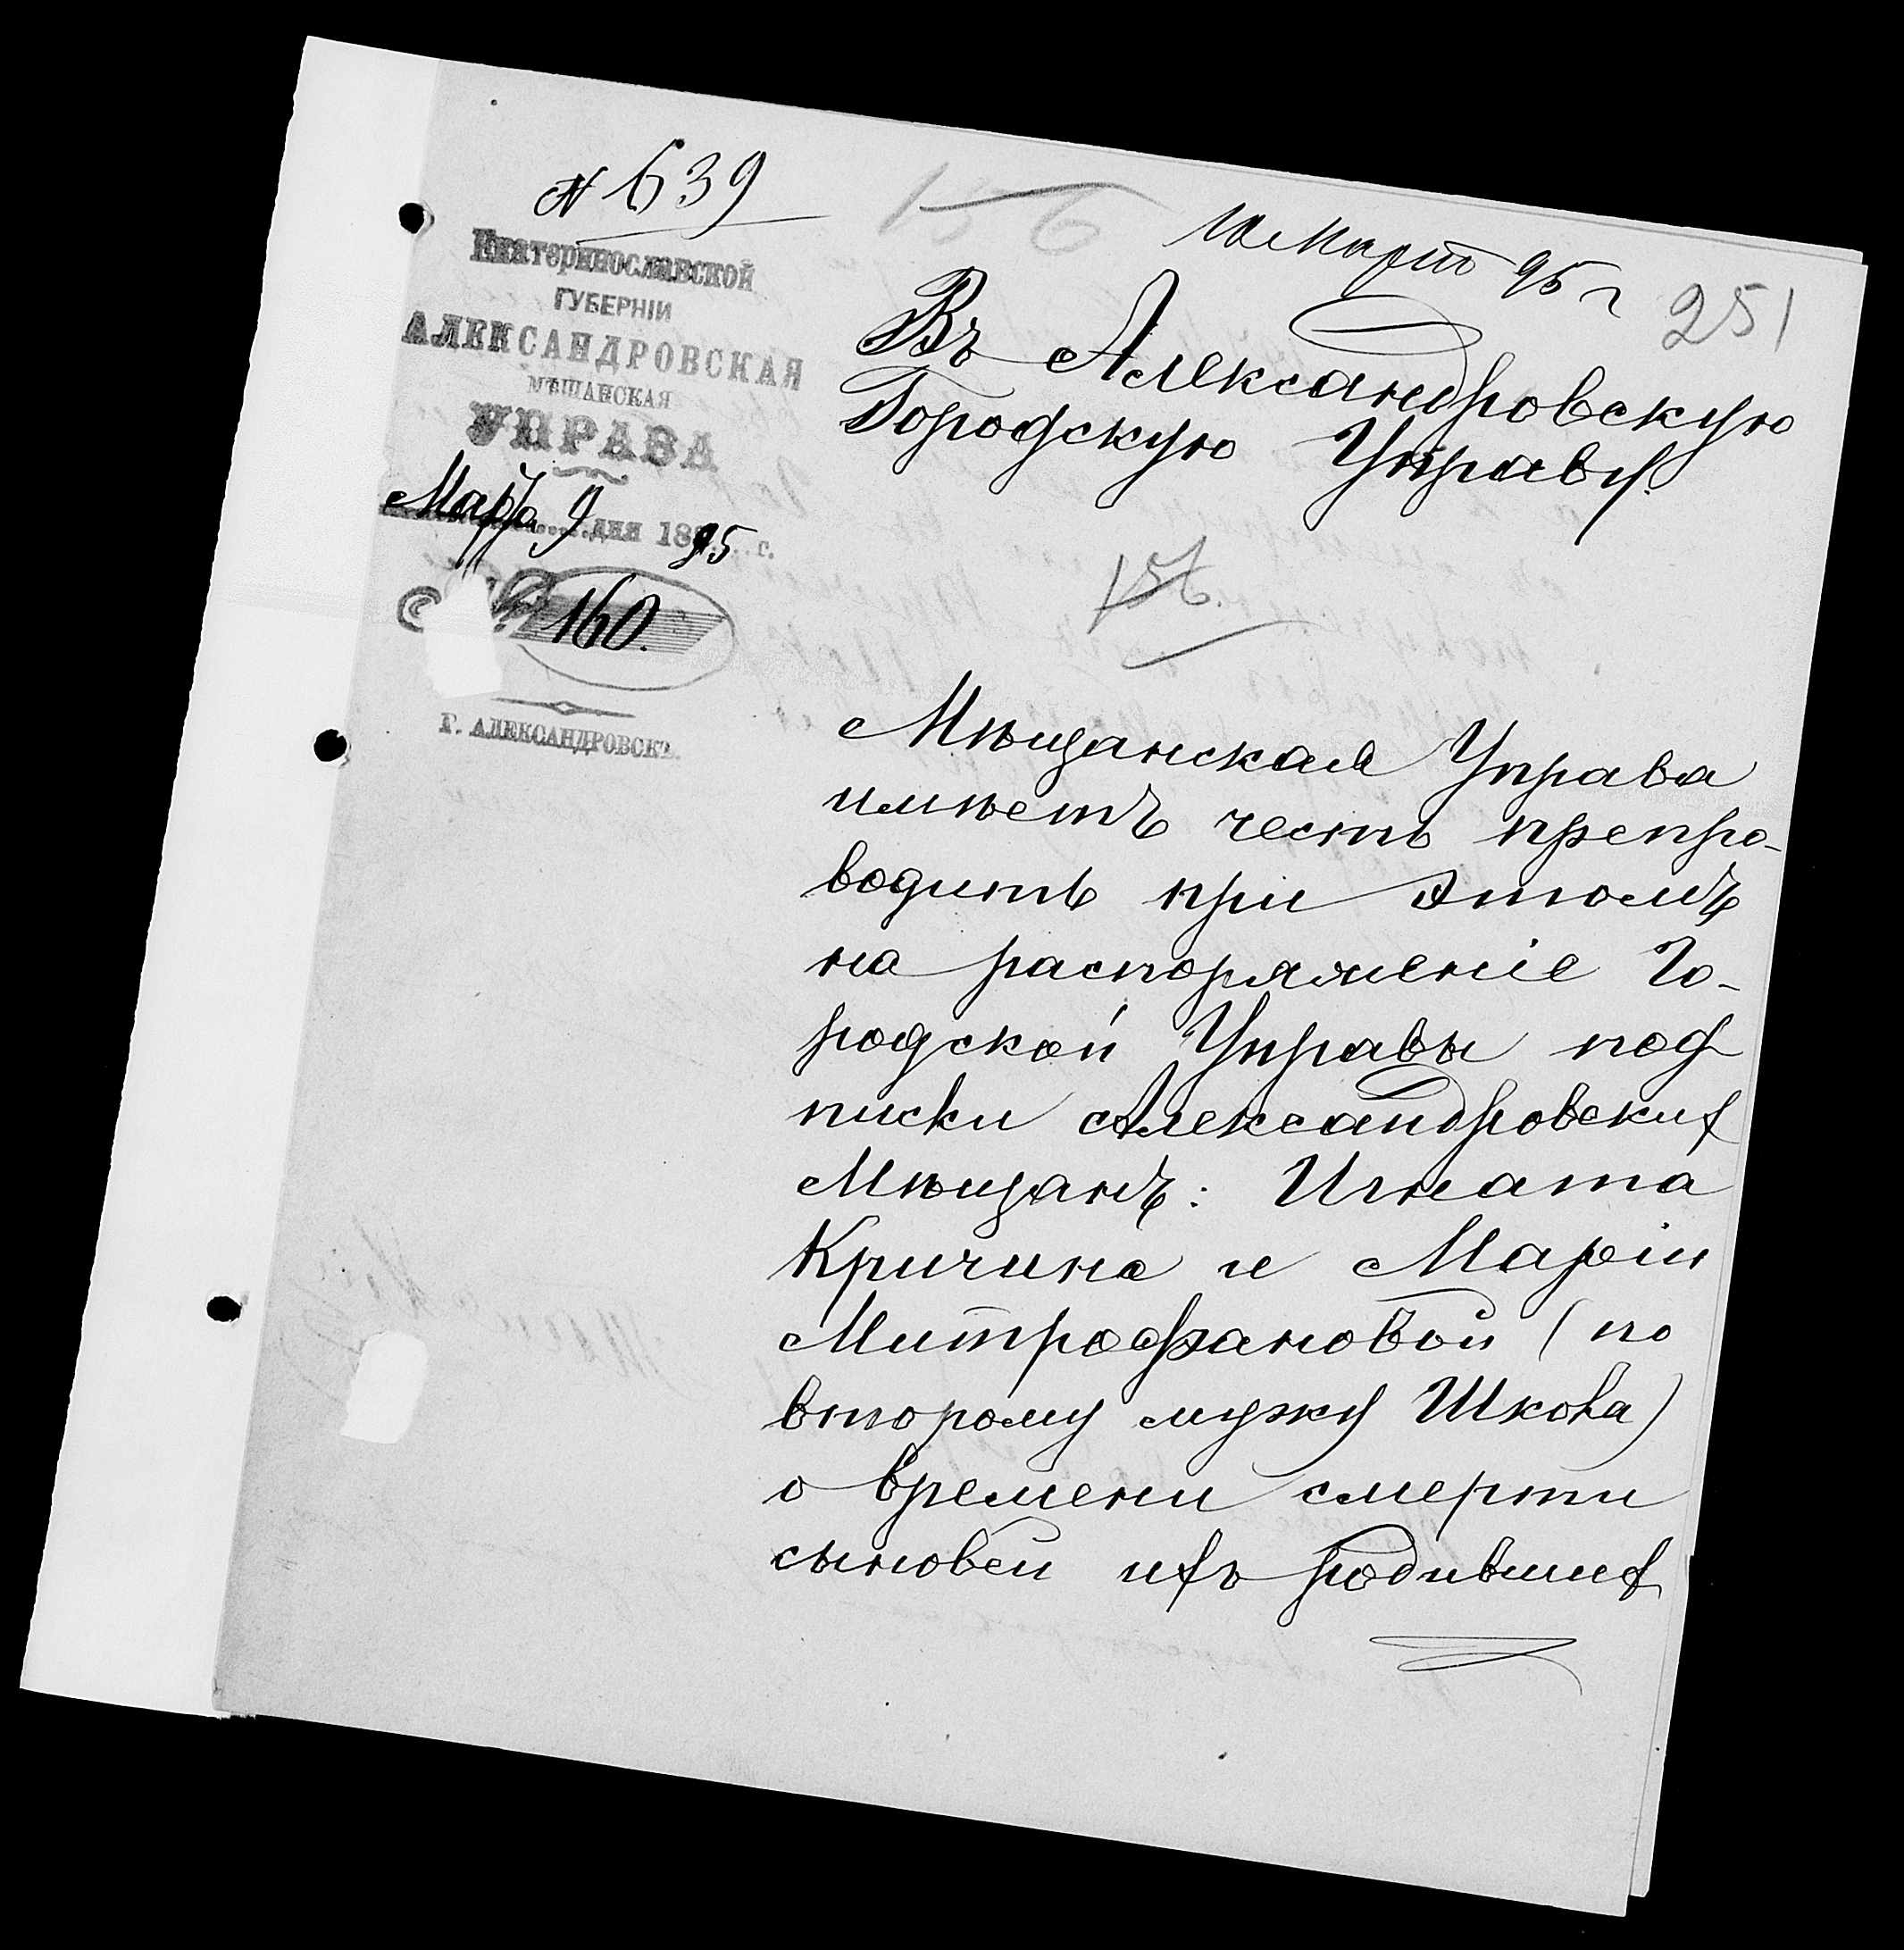 № 639
156
10 Март 95 г
251
Екатеринославской
ГУБЕРНІИ
АЛЕКСАНДРОВСКАЯ
МѢЩАНСКАЯ
УПРАВА
Марта 9 дня 1895 г.
№ 160.
Г. АЛЕКСАНДРОВСКЪ.
Въ Александровскую
Городскую Управу.
156.
Мѣщанская Управа
имѣетъ честь препро-
водить при этомъ
на распоряженіе Го-
родской Управы под
писки Александровских
Мѣщанъ: Игната
Кричина и Маріи
Митрофановой (по
второму мужу Шкова)
о времени смерти
сыновей ихъ родившихся